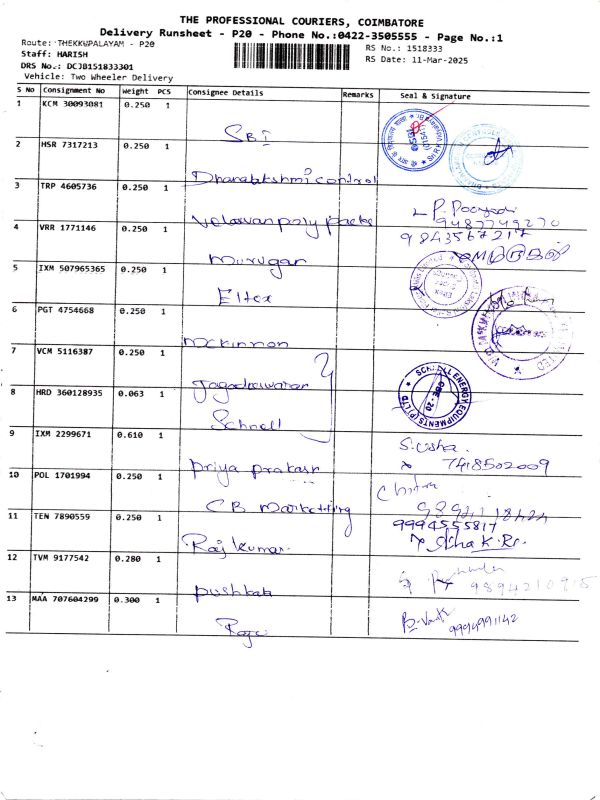 THE PROFESSIONAL COURIERS, COIMBATORE
Delivery Runsheet - P20 - Phone No.:0422-3505555 - Page No.:1
Route: THEKKUPALAYAM - P20
RS No.: 1518333
Staff: HARISH
RS Date: 11-Mar-2025
DRS No.: DCJB151833301
Vehicle: Two Wheeler Delivery
S No Consignment No Weight PCS Consignee Details Remarks Seal & Signature
1 KCM 30093081 0.250 1
SBI
2 HSR 7317213 0.250 1
3 TRP 4605736 0.250 1
9487749270
4 VRR 1771146 0.250 1
9843567217
Murugan
5 IXM 507965365 0.250 1
Eltex
6 PGT 4754668 0.250 1
Mckinnon
7 VCM 5116387 0.250 1
Jagadeswaran
8 HRD 360128935 0.063 1
Schnell
SCHNELL ENERGY EQUIPMENTS (P) LTD
CBE - 20
9 IXM 2299671 0.610 1
S. Usha
Priya prakash
7418502009
10 POL 1701994 0.250 1
Chitra
CB Marketting
11 TEN 7890559 0.250 1
9994555817
Rajkumar
12 TVM 9177542 0.280 1
9894210915
13 MAA 707604299 0.300 1
9994991142
Raju